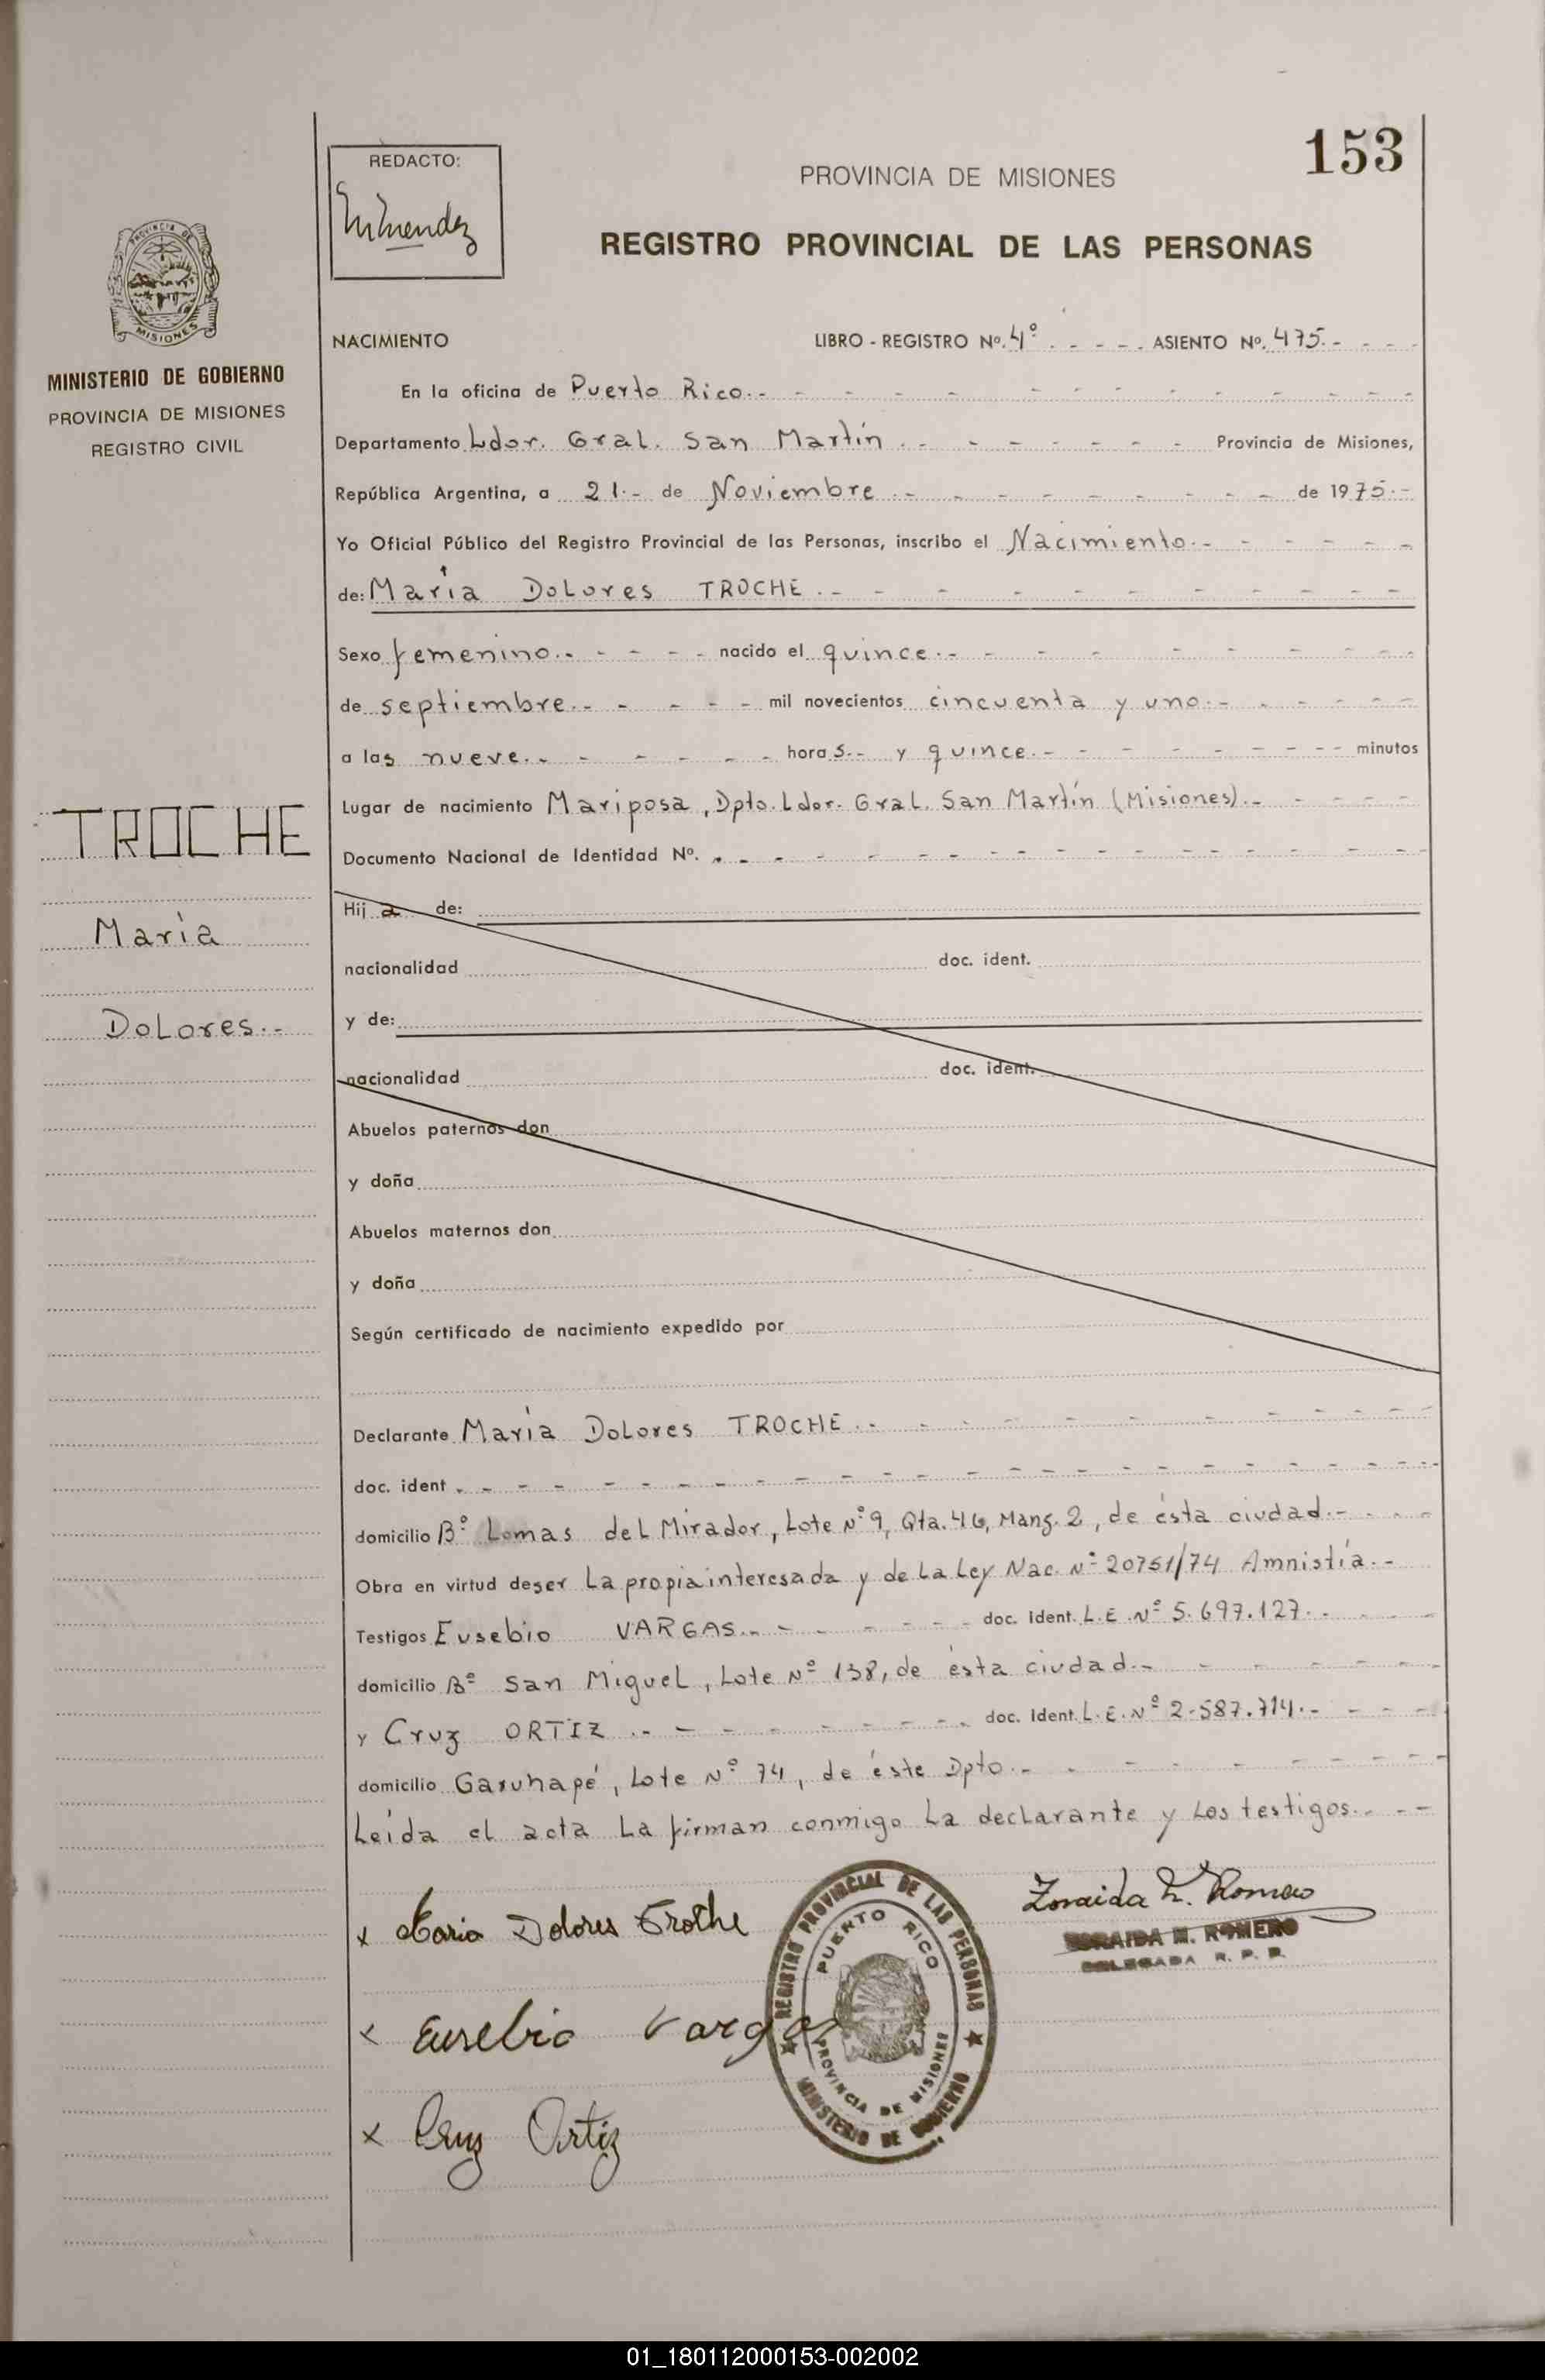 153
REDACTO:
PROVINCIA DE MISIONES
REGISTRO PROVINCIAL DE LAS PERSONAS
PROVINCIA DE
MISIONES
MINISTERIO DE GOBIERNO
PROVINCIA DE MISIONES
REGISTRO CIVIL
NACIMIENTO LIBRO - REGISTRO Nº. 4º ASIENTO Nº. 475.-
En la oficina de Puerto Rico.-
Departamento Ldor. Gral. San Martín.- Provincia de Misiones,
República Argentina, a 21.- de Noviembre.- de 1975.-
Yo Oficial Público del Registro Provincial de las Personas, inscribo el Nacimiento.-
de: María Dolores TROCHE.-
Sexo femenino.- nacido el quince.-
de septiembre.- mil novecientos cincuenta y uno.-
a las nueve.- hora s.- y quince.- minutos
Lugar de nacimiento Mariposa, Dpto. Ldor. Gral. San Martín (Misiones).-
Documento Nacional de Identidad Nº. .-
TROCHE
María
Dolores.-
Hij a de:
nacionalidad doc. ident.
y de:
nacionalidad doc. ident.
Abuelos paternos don
y doña
Abuelos maternos don
y doña
Según certificado de nacimiento expedido por
Declarante María Dolores TROCHE.-
doc. ident .-
domicilio Bº Lomas del Mirador, Lote Nº 9, Qta. 46, Manz. 2, de ésta ciudad.-
Obra en virtud de ser La propia interesada y de La Ley Nac. Nº 20751/74 Amnistía.-
Testigos Eusebio VARGAS.- doc. ident. L.E. Nº 5.697.127.-
domicilio Bº San Miguel, Lote Nº 138, de ésta ciudad.-
y Cruz ORTIZ.- doc. ident. L.E. Nº 2.587.714.-
domicilio Garuhapé, Lote Nº 74, de éste Dpto.-
Leída el acta La firman conmigo La declarante y Los testigos.-
Maria Dolores Troche
Zoraida M. Romero
ZORAIDA M. ROMERO
DELEGADA R. P. P.
REGISTRO PROVINCIAL DE LAS PERSONAS
PUERTO RICO
PROVINCIA DE MISIONES
MINISTERIO DE GOBIERNO
x Eusebio Vargas
x Cruz Ortiz
01_180112000153-002002